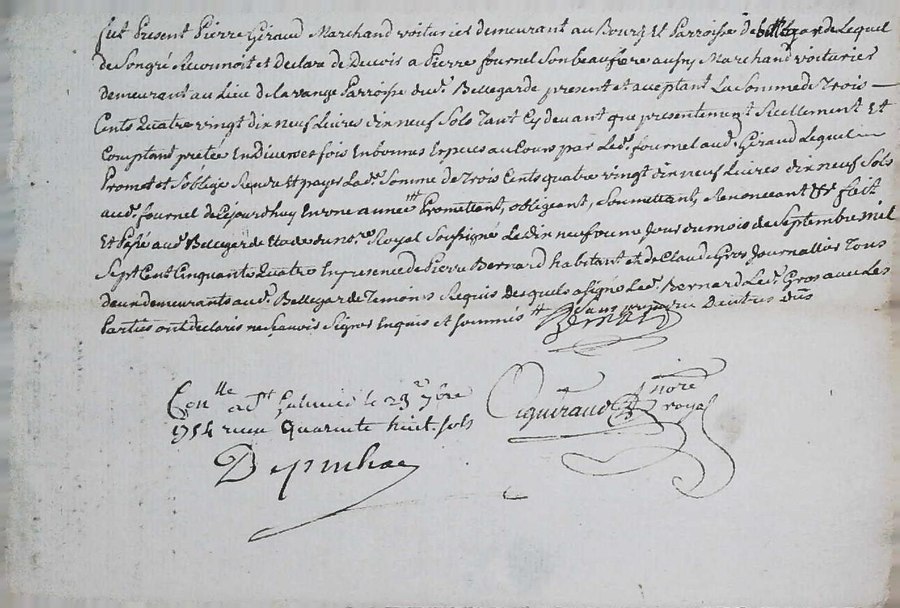 fut Present Pierre Giraud Marchand voiturier demeurant au Bourg Et Parroisse de bellegarde Lequel
de Son gré Reconnoit et declare de Devoir a Pierre fournel Son beaufrere aussy Marchand voiturier
demeurant au Lieu de Lavange Parroisse dud. Bellegarde present et aceptant La Somme de Trois
Cents Quatre vingt dix neuf Livres dix neuf Sols Tant Cy devant que presentement Reellement Et
Comptant pretée En Diverses fois En bonnes Especes au Cours par Led. fournel aud. Giraud Lequel
Promet et S'oblige Rendre Et payer Lad. Somme de Trois Cents quatre vingt dix neuf Livres dix neuf Sols
aud. fournel de Ce jourdhuy En vne année Promettant, obligeant, Soumettant, Renonceant fait
Et Passé aud. Bellegarde Etude du no.re Royal Soussigné Le dix neufvieme Jour du mois de Septembre mil
Sept Cent Cinquante Quatre En presence de Pierre Bernard habitant et de Claude Gros Journallier Tous
Deux demeurants aud. Bellegarde Temoins Requis desquels a Signé Led. Bernard Led. Gros avec Les
Parties ont declaré ne Sçavoir Signer Enquis et Sommés
Bernard
Con.lle a S.t Galmier le 29 7bre
1754 reçu Quarente huit sols
Guiraud no.re royal